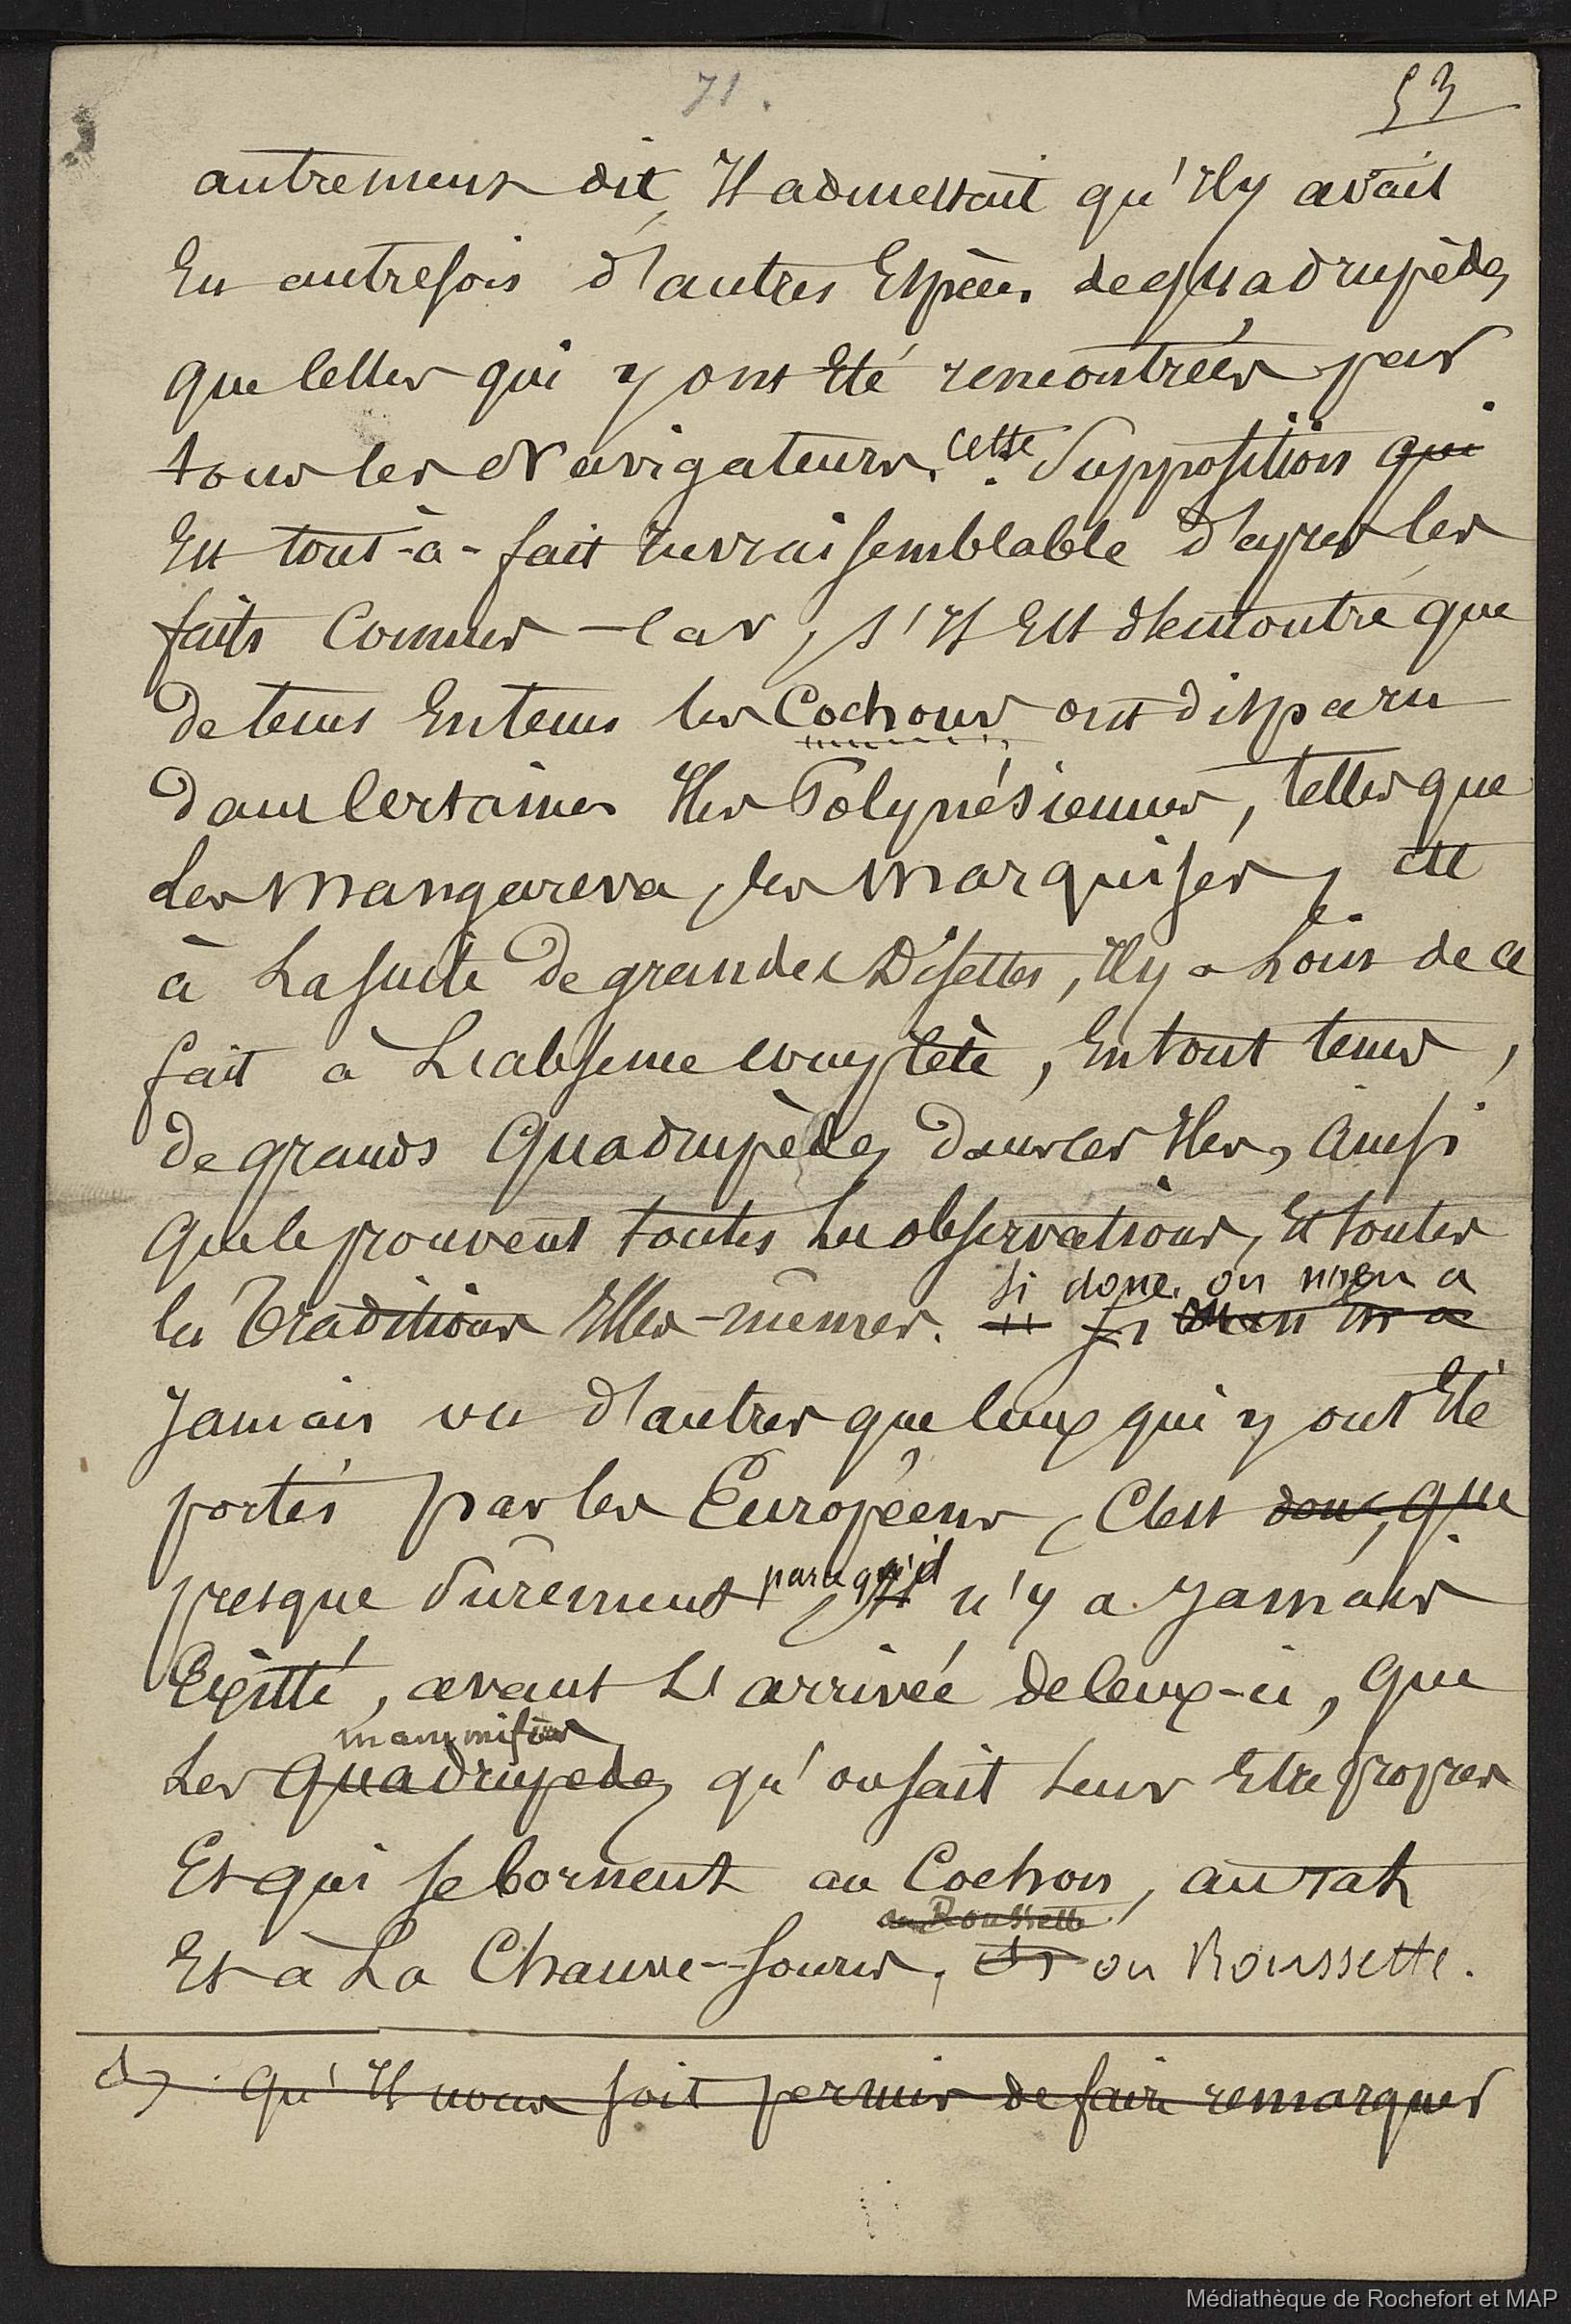 71.
53
autrement dit, Il admettait qu'Il y avait
Eu autrefois d'autres Espèces de quadrupèdes,
que celles qui y ont Eté rencontrées par
tous les Navigateurs. cette Supposition qui
Est tout-à-fait invraisemblable d'après les
faits Connus - car, s'Il Est démontré que
de tems En tems les Cochons ont disparu
dans Certaines Iles Polynésiennes, telles que
Les Mangareva, les Marquises, etc
à La suite de grandes Disettes, Il y a Loin de ce
fait à L'absence complète, En tout tems,
de grands Quadrupèdes dans ces Iles, Ainsi
que le prouvent toutes Les observations, Et toutes
les Traditions Elles-mêmes. Si
si donc, on n'en a
Jamais vu d'autres que ceux qui y ont Eté
portés par les Européens, C'est donc, que
presque Sûrement parcequ'il n'y a Jamais
Existé, avant L'arrivée de ceux-ci, que
mammifères
Les Quadrupèdes qu'on sait Leur Etre propres
Et qui se bornent au Cochon, au rat
ou Roussette
Et à La Chauve-Souris, ou Roussette.
qu'Il nous soit permis de faire remarquer